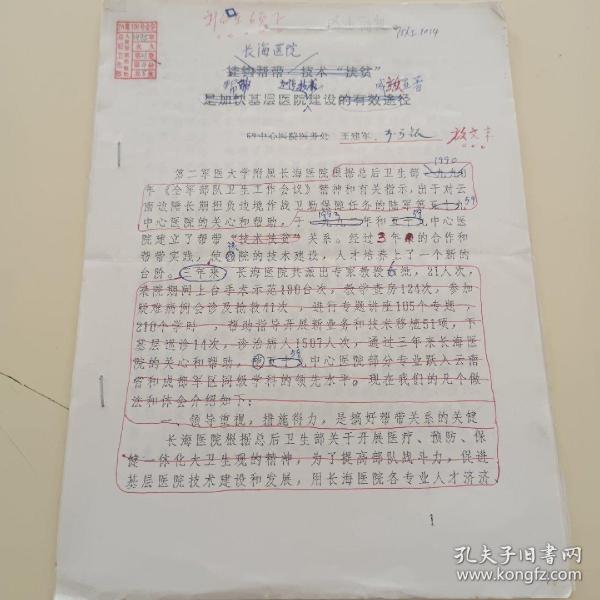 长海医院
挂钩帮带 技术“扶贫”
是加快基层医院建设的有效途径
中心医院医务处 王建军
第二军医大学附属长海医院根据总后卫生部一九九〇
年《全军部队卫生工作会议》精神和有关指示，出于对云
南边陲长期担负边境作战卫勤保障任务的陆军第五十九
中心医院的关心和帮助，于一九九二年和五十九中心医
院建立了帮带“技术扶贫”关系。经过3年的合作和
帮带实践，使医院的技术建设，人才培养上了一个新的
台阶。三年来，长海医院共派出专家教授6批，21人次，
来院期间上台手术示范190台次，教学查房124次，参加
疑难病例会诊及抢救41次，进行专题讲座105个专题，
210个学时，帮助指导开展新业务和技术移植51项，下
基层巡诊14次，诊治病人1507人次，通过三年来长海医
院的关心和帮助，五十九中心医院部分专业跃入云南
省和成都军区同级学科的领先水平。现在我们的几个做
法和体会介绍如下：
一、领导重视，措施得力，是搞好帮带关系的关键
长海医院根据总后卫生部关于开展医疗、预防、保
健一体化大卫生观的精神，为了提高部队战斗力，促进
基层医院技术建设和发展，用长海医院各专业人才济济
1
孔夫子旧书网
www.kongfz.com